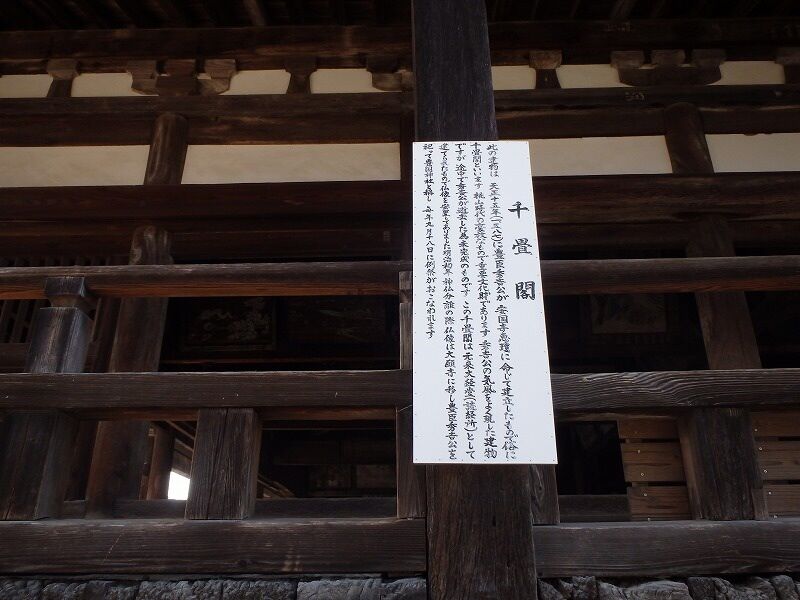 千畳閣
此の建物は 天正十五年(一五八七)に豊臣秀吉公が 安国寺恵瓊に 命じて建立したもので俗に
千畳閣といいます 桃山時代の豪放なもので重要文化財であります 秀吉公の気風をよく現した建物
ですが 途中で秀吉公が逝去した為未完成のものです この千畳閣は 元来大経堂(読経所)として
建てられたもので仏像を安置してありました明治初年 神仏分離の際仏像は大願寺に移し豊臣秀吉公を
祀って豊国神社と称し 毎年九月十八日に例祭がおこなわれます